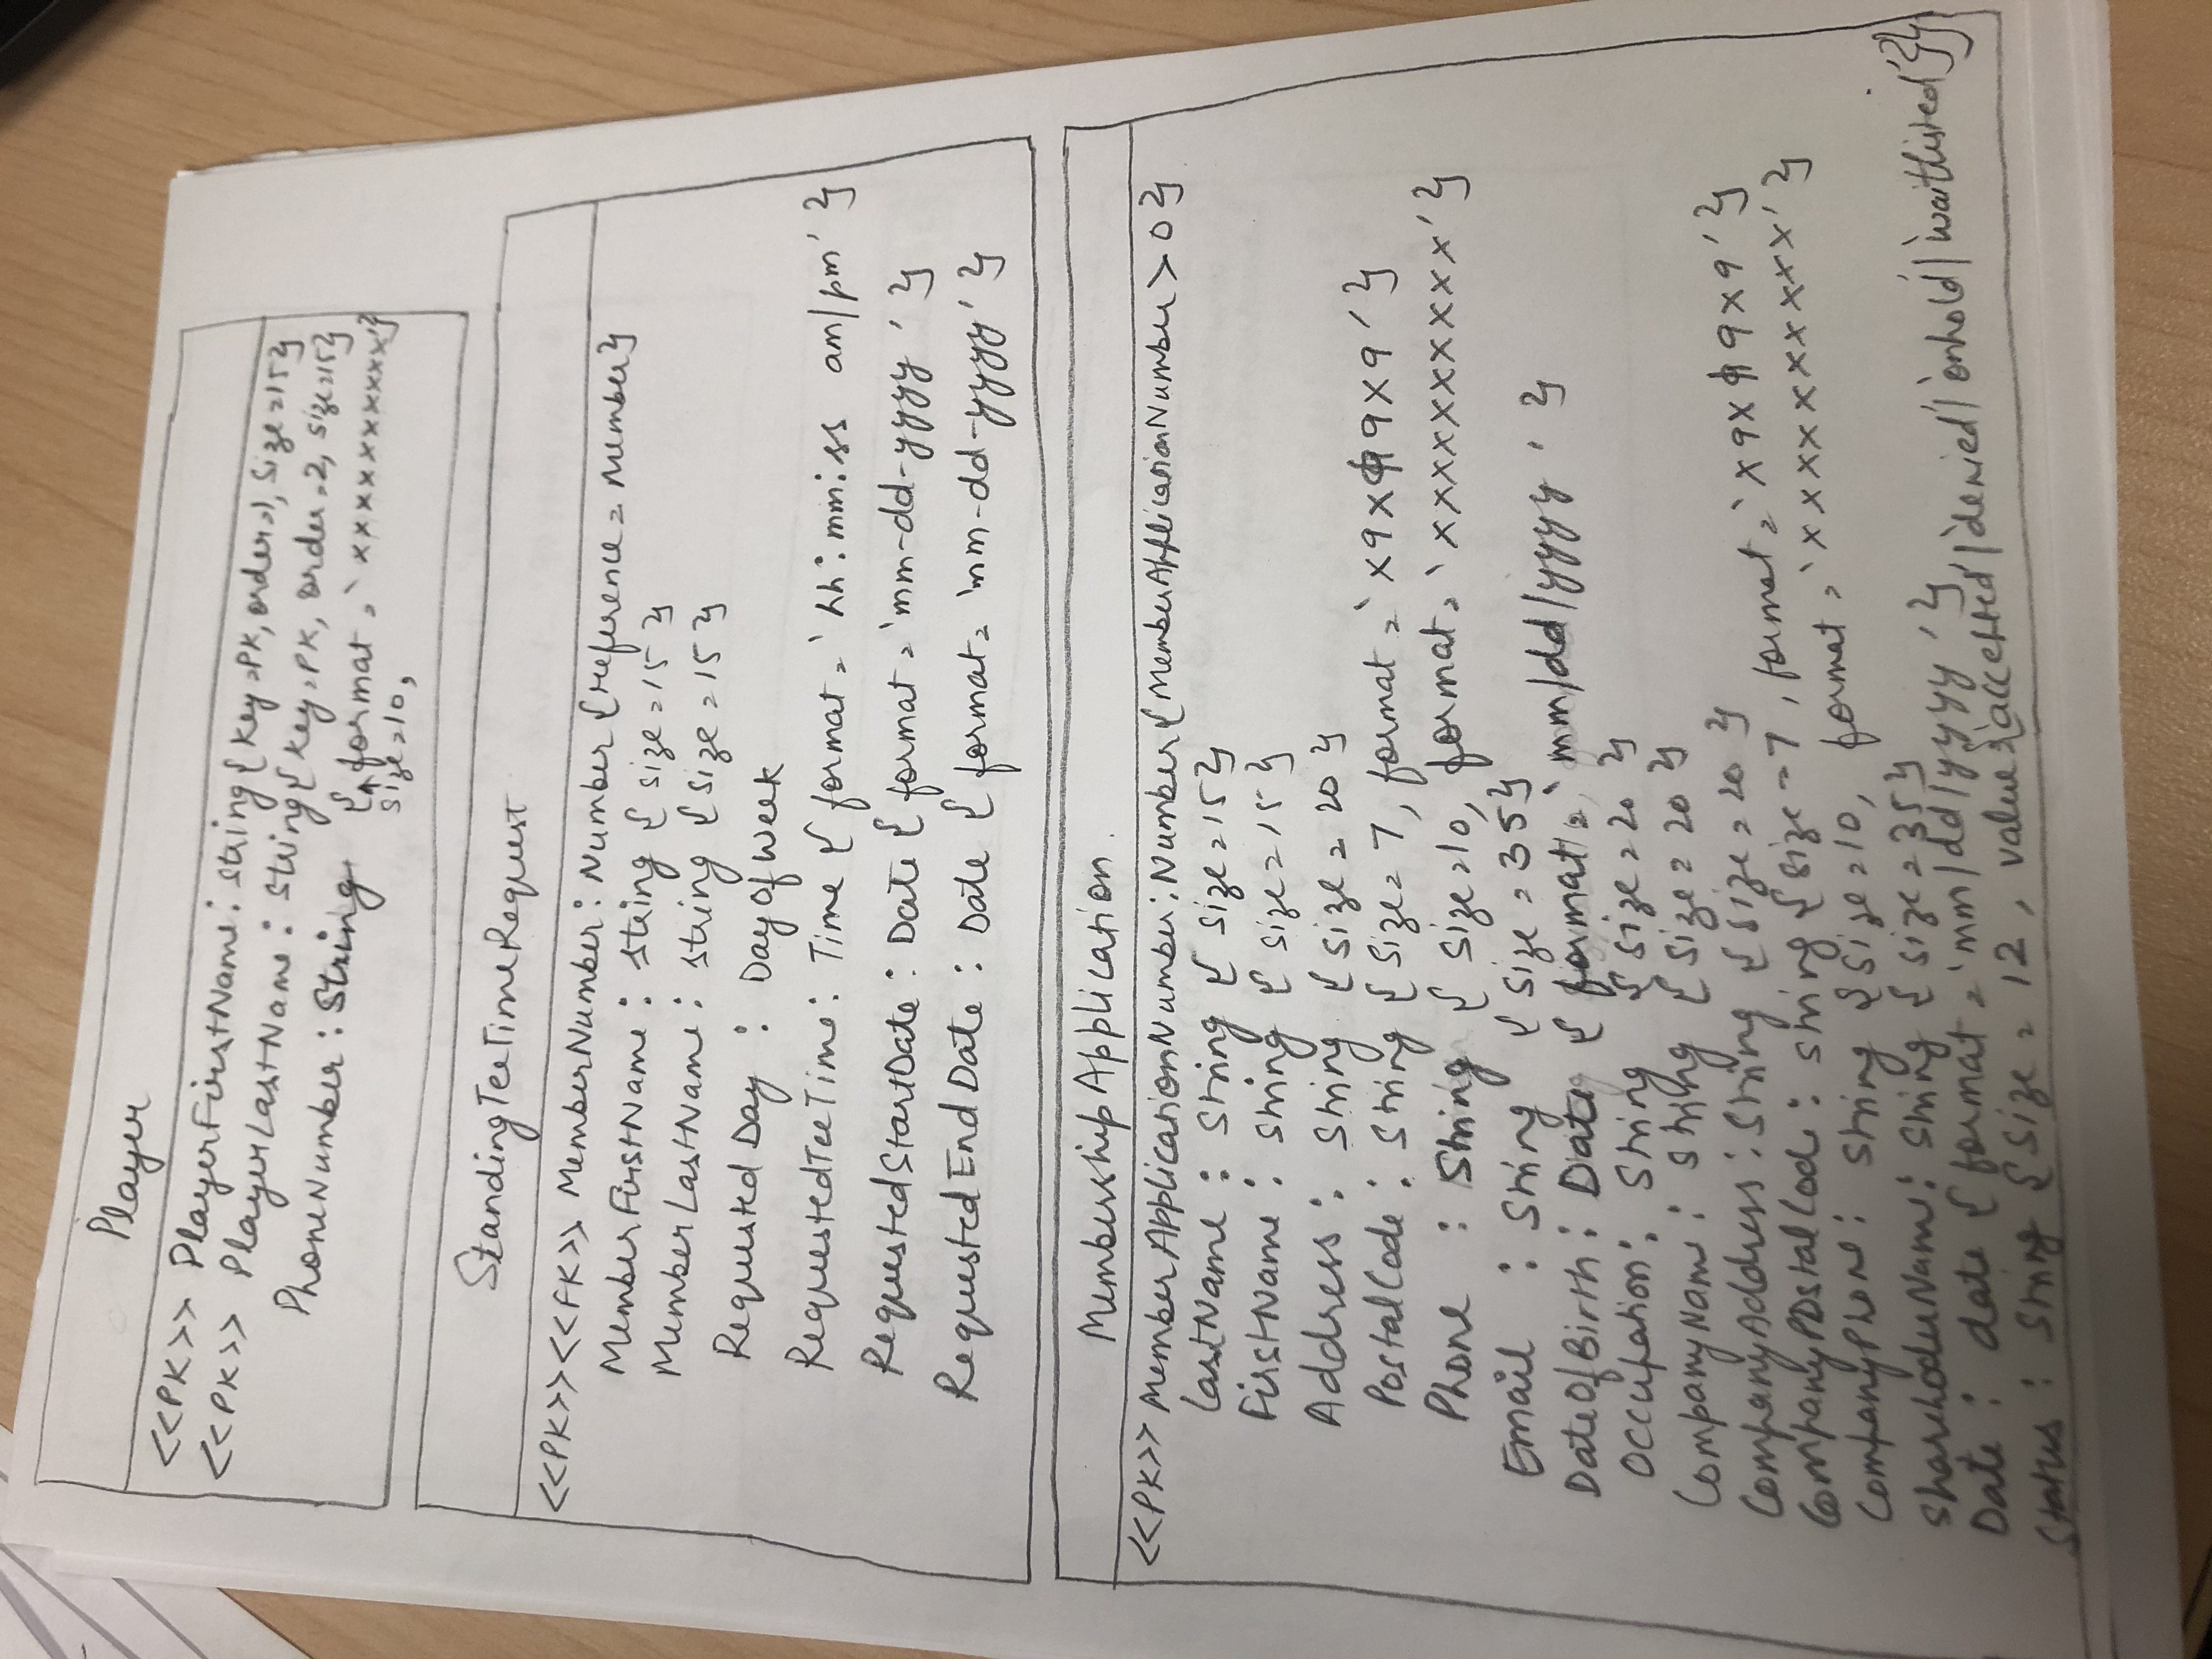 Player
<<PK>> PlayerFirstName: String{Key=PK, order=1, Size=15}
<<PK>> PlayerLastName: String{Key=PK, order=2, size=15}
PhoneNumber: String {format = 'xxxxxxxxxx'}
size=10,
StandingTeeTimeRequest
<<PK>><<FK>> MemberNumber: Number {reference = Member}
MemberFirstName: String {size=15}
MemberLastName: String {size=15}
RequestedDay : DayOfWeek
RequestedTeeTime: Time {format = 'hh:mm:ss am/pm'}
RequestedStartDate: Date {format = 'mm-dd-yyyy'}
RequestedEndDate: Date {format = 'mm-dd-yyyy'}
MembershipApplication.
<<PK>> MemberApplicationNumber: Number{MemberApplicationNumber > 0}
LastName : String {size=15}
FirstName : String {size=15}
Address : String {size = 20}
PostalCode : String {size = 7, format = 'x9x 9x9'}
Phone : String {size=10, format = 'xxxxxxxxxx'}
Email : String {size = 35}
DateOfBirth : Date {format = 'mm/dd/yyyy'}
Occupation: String {size=20}
CompanyName : String {size = 20}
CompanyAddress : String {size = 20}
CompanyPostalCode : String {size = 7, format = 'x9x 9x9'}
CompanyPhone : String {size=10, format = 'xxxxxxxxxx'}
SharehoderName: String {size = 35}
Date : date {format = 'mm/dd/yyyy'}
Status : String {size = 12, value={'accepted'|'denied'|'onhold'|'waitlisted'}}